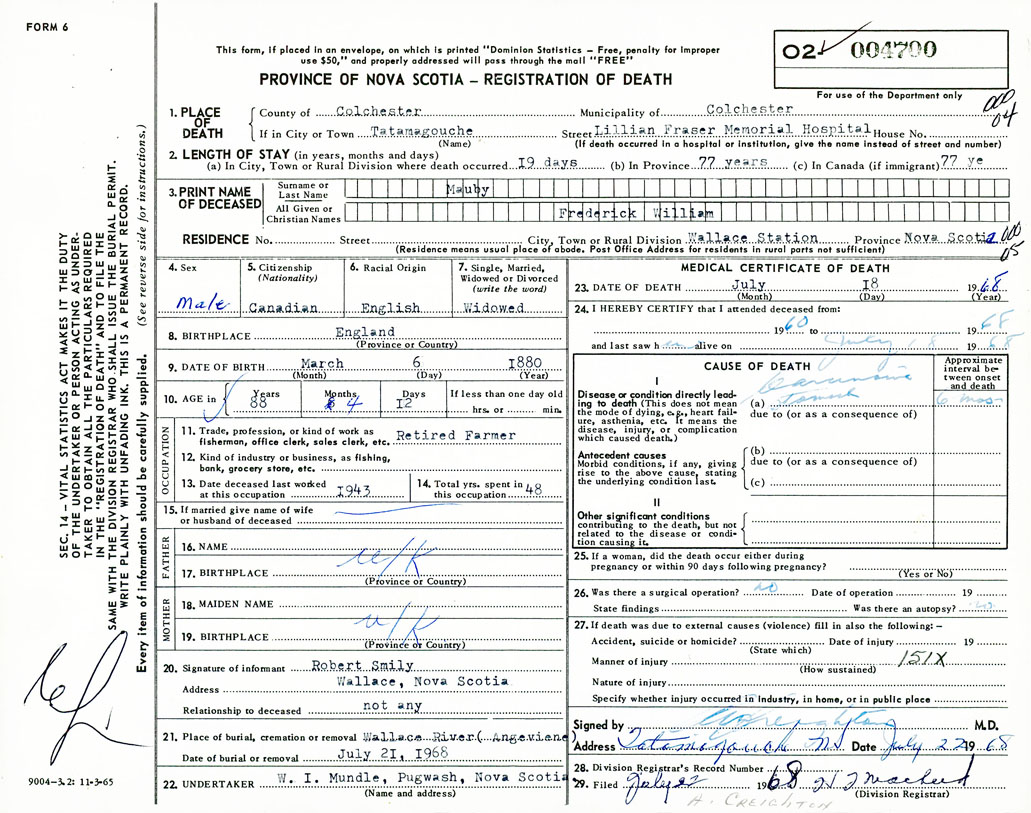 FORM 6
This form, if placed in an envelope, on which is printed "Dominion Statistics – Free, penalty for improper
use $50," and properly addressed will pass through the mail "FREE"
PROVINCE OF NOVA SCOTIA – REGISTRATION OF DEATH
O2 004790
For use of the Department only
000
04
SEC. 14 – VITAL STATISTICS ACT MAKES IT THE DUTY
OF THE UNDERTAKER OR PERSON ACTING AS UNDER-
TAKER TO OBTAIN ALL THE PARTICULARS REQUIRED
IN THE "REGISTRATION OF DEATH" AND TO FILE THE
SAME WITH THE DIVISION REGISTRAR WHO SHALL ISSUE THE BURIAL PERMIT.
WRITE PLAINLY WITH UNFADING INK. THIS IS A PERMANENT RECORD.
Every item of information should be carefully supplied. (See reverse side for instructions.)
1. PLACE OF DEATH
County of Colchester Municipality of Colchester
If in City or Town Tatamagouche Street Lillian Fraser Memorial Hospital House No.
(Name) (If death occurred in a hospital or institution, give the name instead of street and number)
2. LENGTH OF STAY (in years, months and days)
(a) In City, Town or Rural Division where death occurred I9 days (b) In Province 77 years (c) In Canada (if immigrant) 77 ye
3. PRINT NAME OF DECEASED
Surname or Last Name Mauby
All Given or Christian Names Frederick William
RESIDENCE No. Street City, Town or Rural Division Wallace Station Province Nova Scotia
(Residence means usual place of abode. Post Office Address for residents in rural parts not sufficient)
000
05
4. Sex Male
5. Citizenship (Nationality) Canadian
6. Racial Origin English
7. Single, Married, Widowed or Divorced (write the word) Widowed
8. BIRTHPLACE England
(Province or Country)
9. DATE OF BIRTH March 6 I880
(Month) (Day) (Year)
10. AGE in Years 88 Months 4 Days I2 If less than one day old hrs. or min.
OCCUPATION
11. Trade, profession, or kind of work as fisherman, office clerk, sales clerk, etc. Retired Farmer
12. Kind of industry or business, as fishing, bank, grocery store, etc.
13. Date deceased last worked at this occupation I943
14. Total yrs. spent in this occupation 48
15. If married give name of wife or husband of deceased
FATHER
16. NAME
U/K
17. BIRTHPLACE
(Province or Country)
MOTHER
18. MAIDEN NAME
U/K
19. BIRTHPLACE
(Province or Country)
20. Signature of informant Robert Smily
Address Wallace, Nova Scotia
Relationship to deceased not any
21. Place of burial, cremation or removal Wallace River( Angeviene)
Date of burial or removal July 21, I968
22. UNDERTAKER W. I. Mundle, Pugwash, Nova Scotia
(Name and address)
9004-3.2: 11-3-65
MEDICAL CERTIFICATE OF DEATH
23. DATE OF DEATH July I8 1968
(Month) (Day) (Year)
24. I HEREBY CERTIFY that I attended deceased from:
1960 to 1968
and last saw h alive on July 18 1968
CAUSE OF DEATH
Approximate interval between onset and death
I
Disease or condition directly leading to death (This does not mean the mode of dying, e.g., heart failure, asthenia, etc. It means the disease, injury, or complication which caused death.)
(a) Carcinoma 6 mos
due to (or as a consequence of)
Antecedent causes
Morbid conditions, if any, giving rise to the above cause, stating the underlying condition last.
(b)
due to (or as a consequence of)
(c)
II
Other significant conditions contributing to the death, but not related to the disease or condition causing it.
25. If a woman, did the death occur either during
pregnancy or within 90 days following pregnancy?
(Yes or No)
26. Was there a surgical operation? no Date of operation 19
State findings Was there an autopsy? no
27. If death was due to external causes (violence) fill in also the following: –
Accident, suicide or homicide? Date of injury 19
(State which)
Manner of injury 151X
(How sustained)
Nature of injury
Specify whether injury occurred in Industry, in home, or in public place
Signed by Creighton M.D.
Address Tatamagouche NS Date July 22 1968
28. Division Registrar's Record Number
29. Filed July 22 1968
(Division Registrar)
H. CREIGHTON